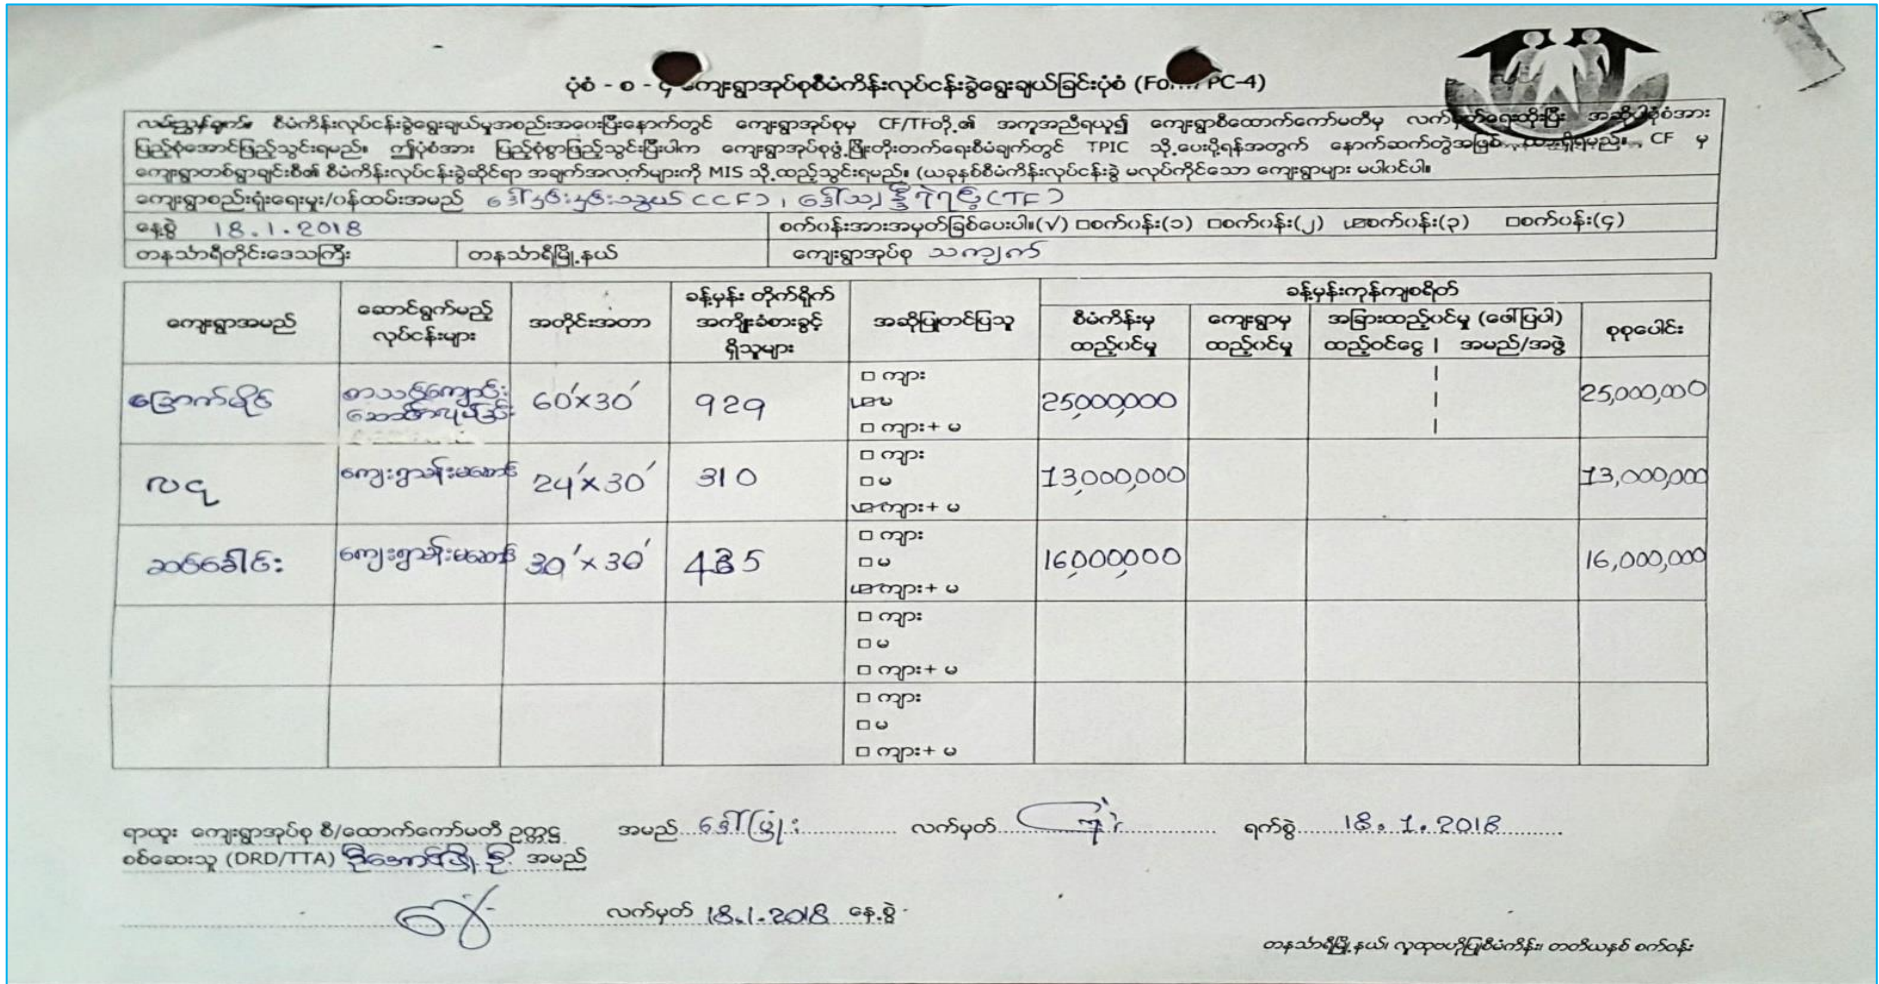 ပုံစံ - စ - ၄ ကျေးရွာအုပ်စုစီမံကိန်းလုပ်ငန်းခွဲရွေးချယ်ခြင်းပုံစံ (Form PC-4)
လမ်းညွှန်ချက်။ စီမံကိန်းလုပ်ငန်းခွဲရွေးချယ်မှုအစည်းအဝေးပြီးနောက်တွင် ကျေးရွာအုပ်စုမှ CF/TFတို့၏ အကူအညီရယူ၍ ကျေးရွာစီထောက်ကော်မတီမှ လက်မှတ်ရေးထိုးပြီး အဆိုပါပုံစံအား
ပြည့်စုံအောင်ဖြည့်သွင်းရမည်။ ဤပုံစံအား ပြည့်စုံစွာဖြည့်သွင်းပြီးပါက ကျေးရွာအုပ်စုဖွံ့ဖြိုးတိုးတက်ရေးစီမံချက်တွင် TPIC သို့ပေးပို့ရန်အတွက် နောက်ဆက်တွဲအဖြစ် ထားရှိရမည်။ CF မှ
ကျေးရွာတစ်ရွာချင်းစီ၏ စီမံကိန်းလုပ်ငန်းခွဲဆိုင်ရာ အချက်အလက်များကို MIS သို့ထည့်သွင်းရမည်။ (ယခုနှစ်စီမံကိန်းလုပ်ငန်းခွဲ မလုပ်ကိုင်သော ကျေးရွာများ မပါဝင်ပါ။
ကျေးရွာစည်းရုံးရေးမှူး/ဝန်ထမ်းအမည် (CF)၊ (TF)
နေ့စွဲ 18.1.2018 စက်ဝန်းအားအမှတ်ခြစ်ပေးပါ။(√) □စက်ဝန်း(၁) □စက်ဝန်း(၂) ☑စက်ဝန်း(၃) □စက်ဝန်း(၄)
တနင်္သာရီတိုင်းဒေသကြီး တနင်္သာရီမြို့နယ် ကျေးရွာအုပ်စု သကျက်
ခန့်မှန်းကုန်ကျစရိတ်
ကျေးရွာအမည် ဆောင်ရွက်မည့် လုပ်ငန်းများ အတိုင်းအတာ ခန့်မှန်း တိုက်ရိုက် အကျိုးခံစားခွင့် ရှိသူများ အဆိုပြုတင်ပြသူ စီမံကိန်းမှ ထည့်ဝင်မှု ကျေးရွာမှ ထည့်ဝင်မှု အခြားထည့်ဝင်မှု (ဖော်ပြပါ) ထည့်ဝင်ငွေ | အမည်/အဖွဲ့ စုစုပေါင်း
စာသင်ကျောင်း 60'×30' 929 □ ကျား ☑ မ □ ကျား+ မ 25,000,000 25,000,000
လငု ကျေးရွာလမ်းမဆောင် 24'×30' 310 □ ကျား □ မ ☑ ကျား+ မ 13,000,000 13,000,000
ဆင်ခေါင်း ကျေးရွာလမ်းမဆောင် 30'×30' 435 □ ကျား □ မ ☑ ကျား+ မ 16,000,000 16,000,000
□ ကျား □ မ □ ကျား+ မ
□ ကျား □ မ □ ကျား+ မ
ရာထူး ကျေးရွာအုပ်စု စီ/ထောက်ကော်မတီ ဥက္ကဋ္ဌ အမည် လက်မှတ် ရက်စွဲ 18.1.2018
စစ်ဆေးသူ (DRD/TTA) အမည်
လက်မှတ် 18.1.2018 နေ့စွဲ
တနင်္သာရီမြို့နယ်၊ လူထုဗဟိုပြုစီမံကိန်း၊ တတိယနှစ် စက်ဝန်း